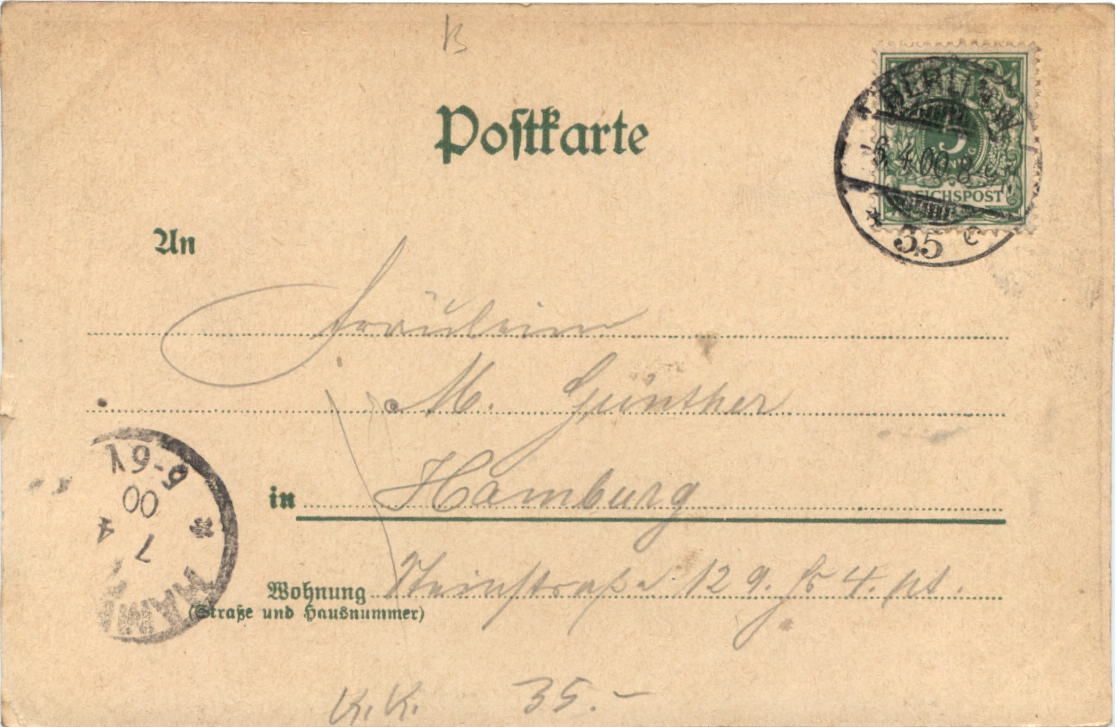 B
Postkarte
BERLIN W
6.4.00.8-9
REICHSPOST
5
* 35 c
An
Fräulein
M. Günther
in Hamburg
Wohnung Steinstraße 129. Hs 4. pt.
(Straße und Hausnummer)
HAMB
7 4
00
6-9V
*
K.K. 35.-